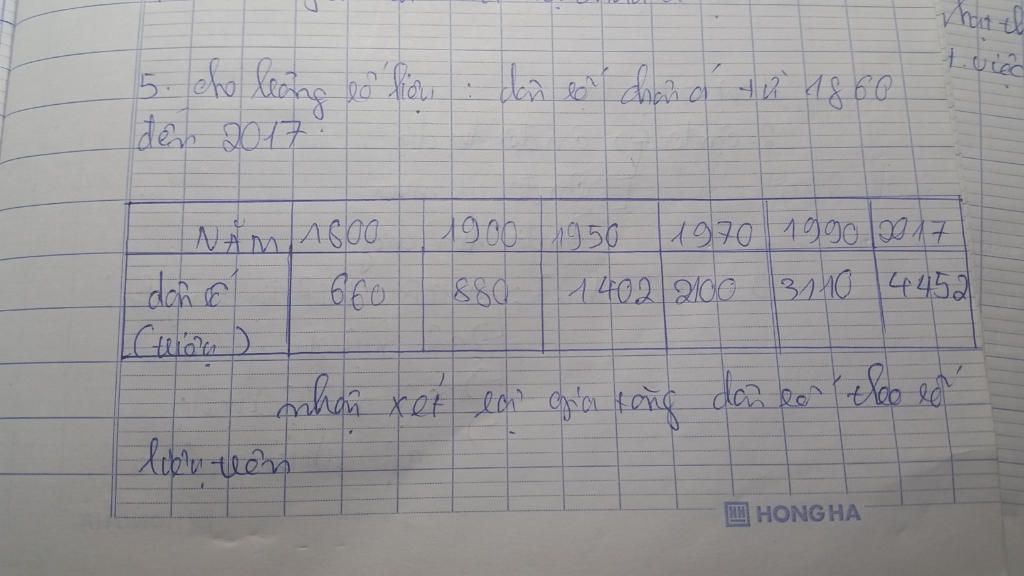 5. cho bảng số liệu : dân số châu á từ 1860
đến 2017.
NĂM 1800 1900 1950 1970 1990 2017
dân số 660 880 1402 2100 3110 4452
(triệu)
nhận xét sự gia tăng dân số theo số
liệu trên
HONG HA